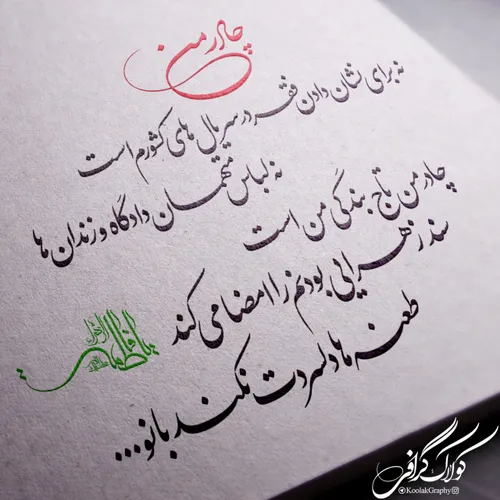 چادر من
نه برای نشان دادن فقر در سریال های کشورم است
نه لباس متهمان دادگاه و زندان ها
چادر من تاج بندگی من است
سند زهرایی بودنم را امضا می کند
طعنه ها دلسردت نکند بانو...
یا فاطمة الزهرا
کولاک گرافی
KoolakGraphy